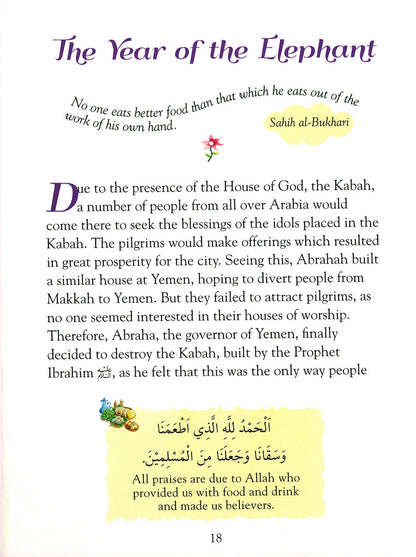 The Year of the Elephant
No one eats better food than that which he eats out of the
work of his own hand.
Sahih al-Bukhari
Due to the presence of the House of God, the Kabah,
a number of people from all over Arabia would
come there to seek the blessings of the idols placed in the
Kabah. The pilgrims would make offerings which resulted
in great prosperity for the city. Seeing this, Abrahah built
a similar house at Yemen, hoping to divert people from
Makkah to Yemen. But they failed to attract pilgrims, as
no one seemed interested in their houses of worship.
Therefore, Abraha, the governor of Yemen, finally
decided to destroy the Kabah, built by the Prophet
Ibrahim , as he felt that this was the only way people
اَلْحَمْدُ لِلّٰهِ الَّذِي اَطْعَمَنَا
وَسَقَانَا وَجَعَلَنَا مِنَ الْمُسْلِمِيْنَ.
All praises are due to Allah who
provided us with food and drink
and made us believers.
18